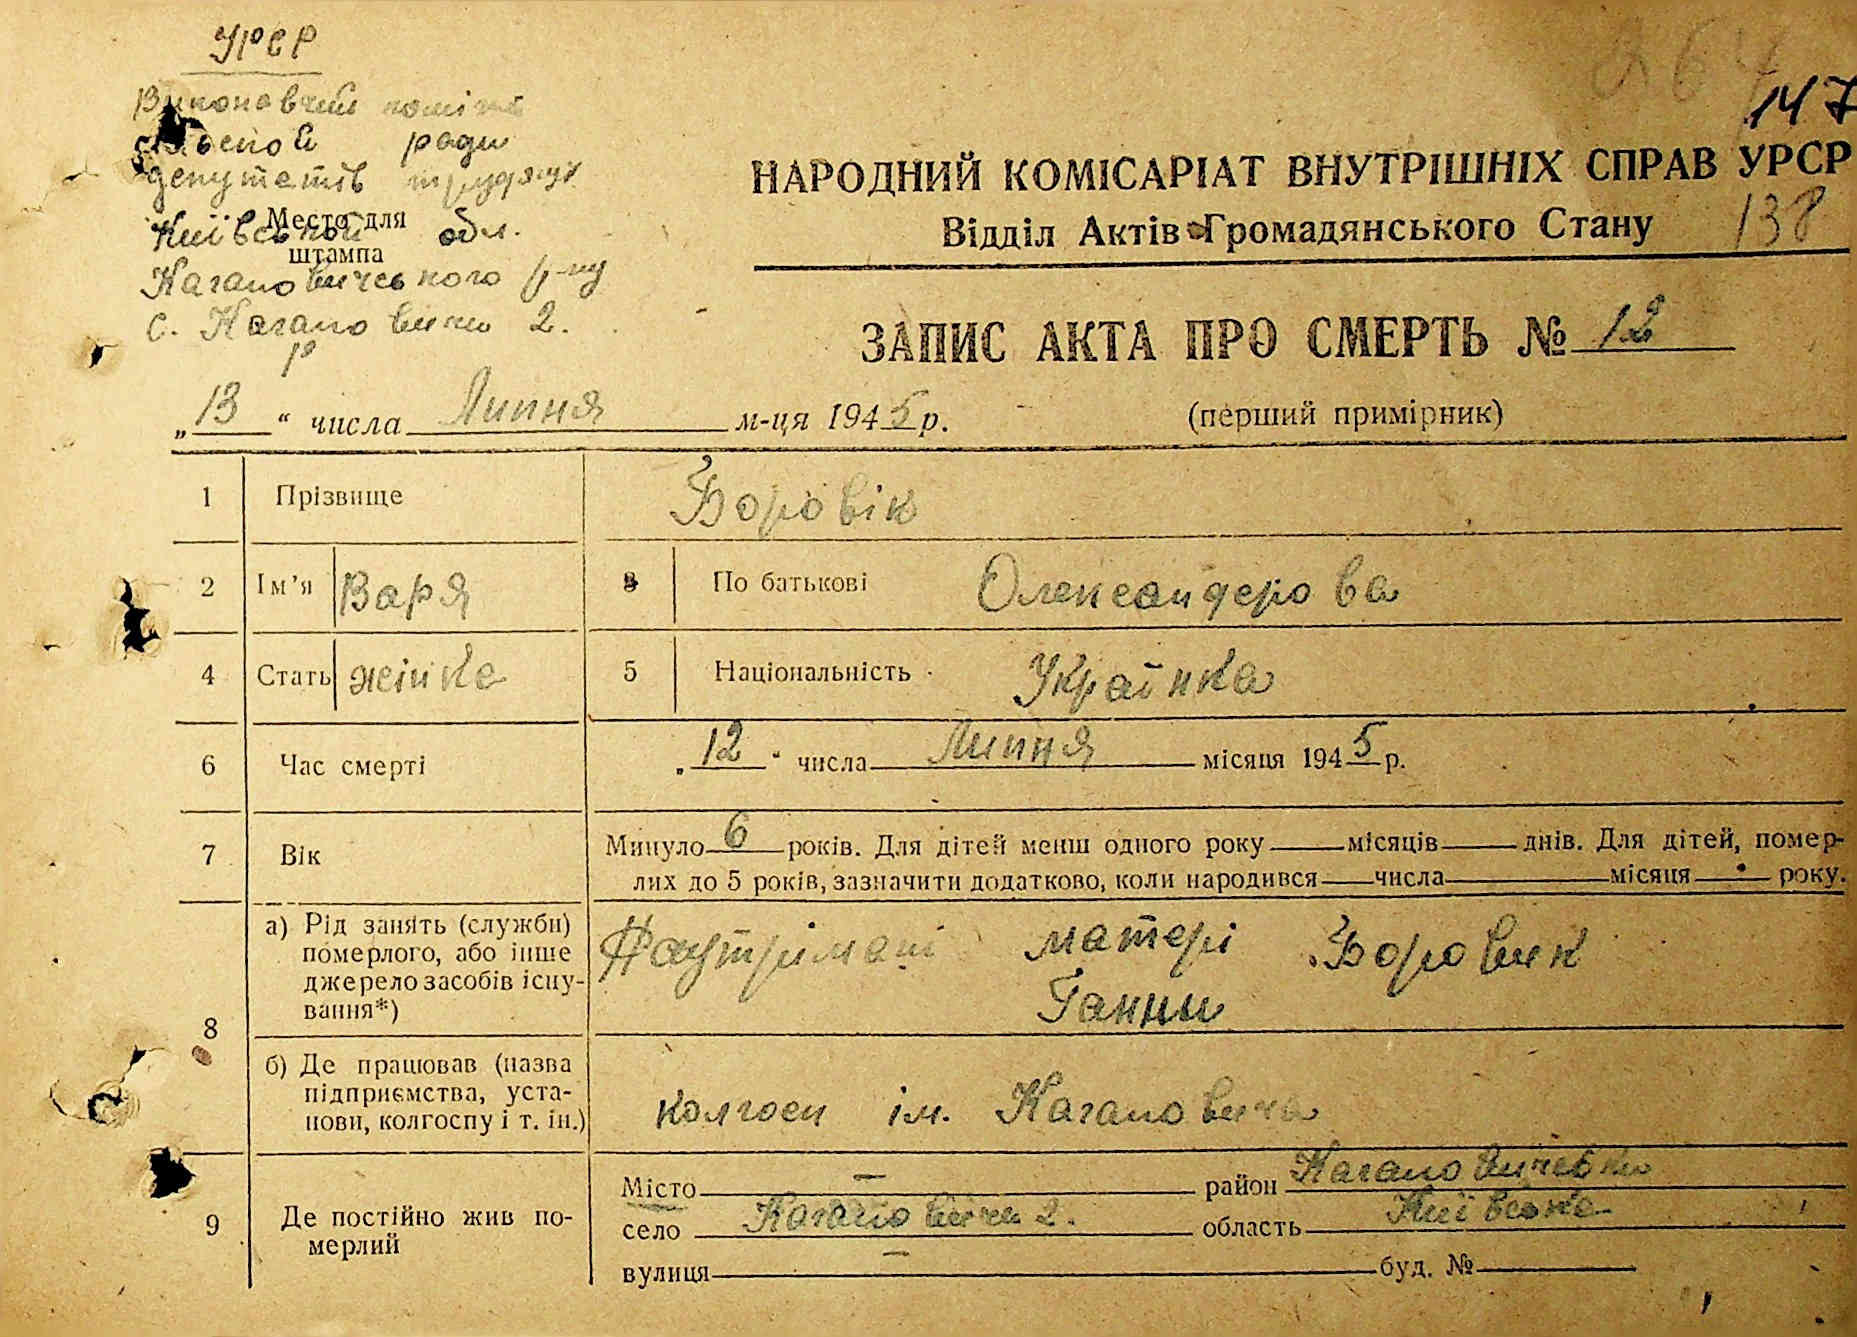 УРСР
Виконавчий комітет
ради
депутатів трудящих
Київської обл.
Место для
штампа
Кагановичського р-ну
с. Кагановичи 2.
264
147
НАРОДНИЙ КОМІСАРІАТ ВНУТРІШНІХ СПРАВ УРСР
Відділ Актів Громадянського Стану 138
ЗАПИС АКТА ПРО СМЕРТЬ № 12
„13“ числа Липня м-ця 1945 р. (перший примірник)
1 Прізвище Боровік
2 Ім’я Варя 3 По батькові Олександерова
4 Стать жінка 5 Національність Українка
6 Час смерті „12“ числа Липня місяця 1945 р.
7 Вік Минуло 6 років. Для дітей менш одного року місяців днів. Для дітей, помер-
лих до 5 років, зазначити додатково, коли народився числа місяця року.
8 а) Рід занять (служби)
померлого, або інше
джерело засобів існу-
вання*)
Наутрімані матері Боровик
Ганни
б) Де працював (назва
підприємства, уста-
нови, колгоспу і т. ін.)
колгосп ім. Кагановича
9 Де постійно жив по-
мерлий
Місто — район Кагановичевский
село Кагановичи 2. область Київська
вулиця — буд. №